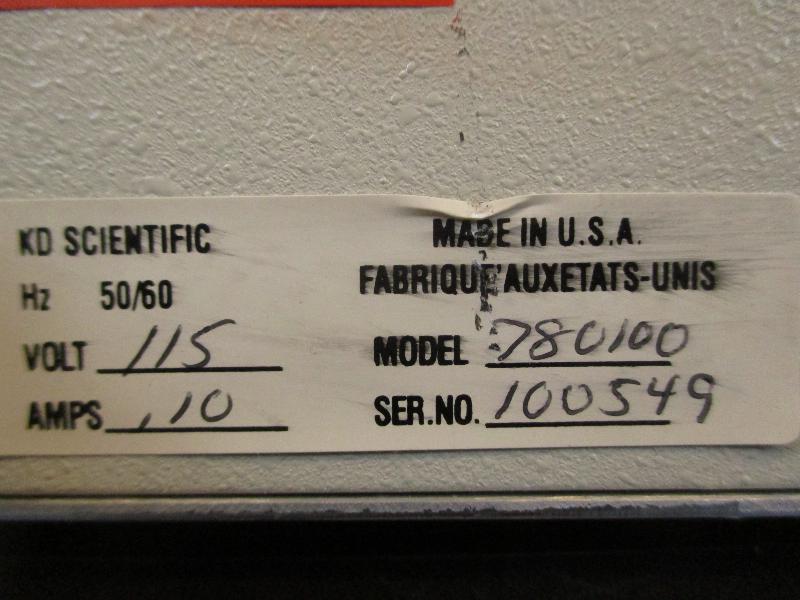 KD SCIENTIFIC
Hz 50/60
VOLT 115
AMPS .10
MADE IN U.S.A.
FABRIQUE'AUXETATS-UNIS
MODEL 780100
SER.NO. 100549